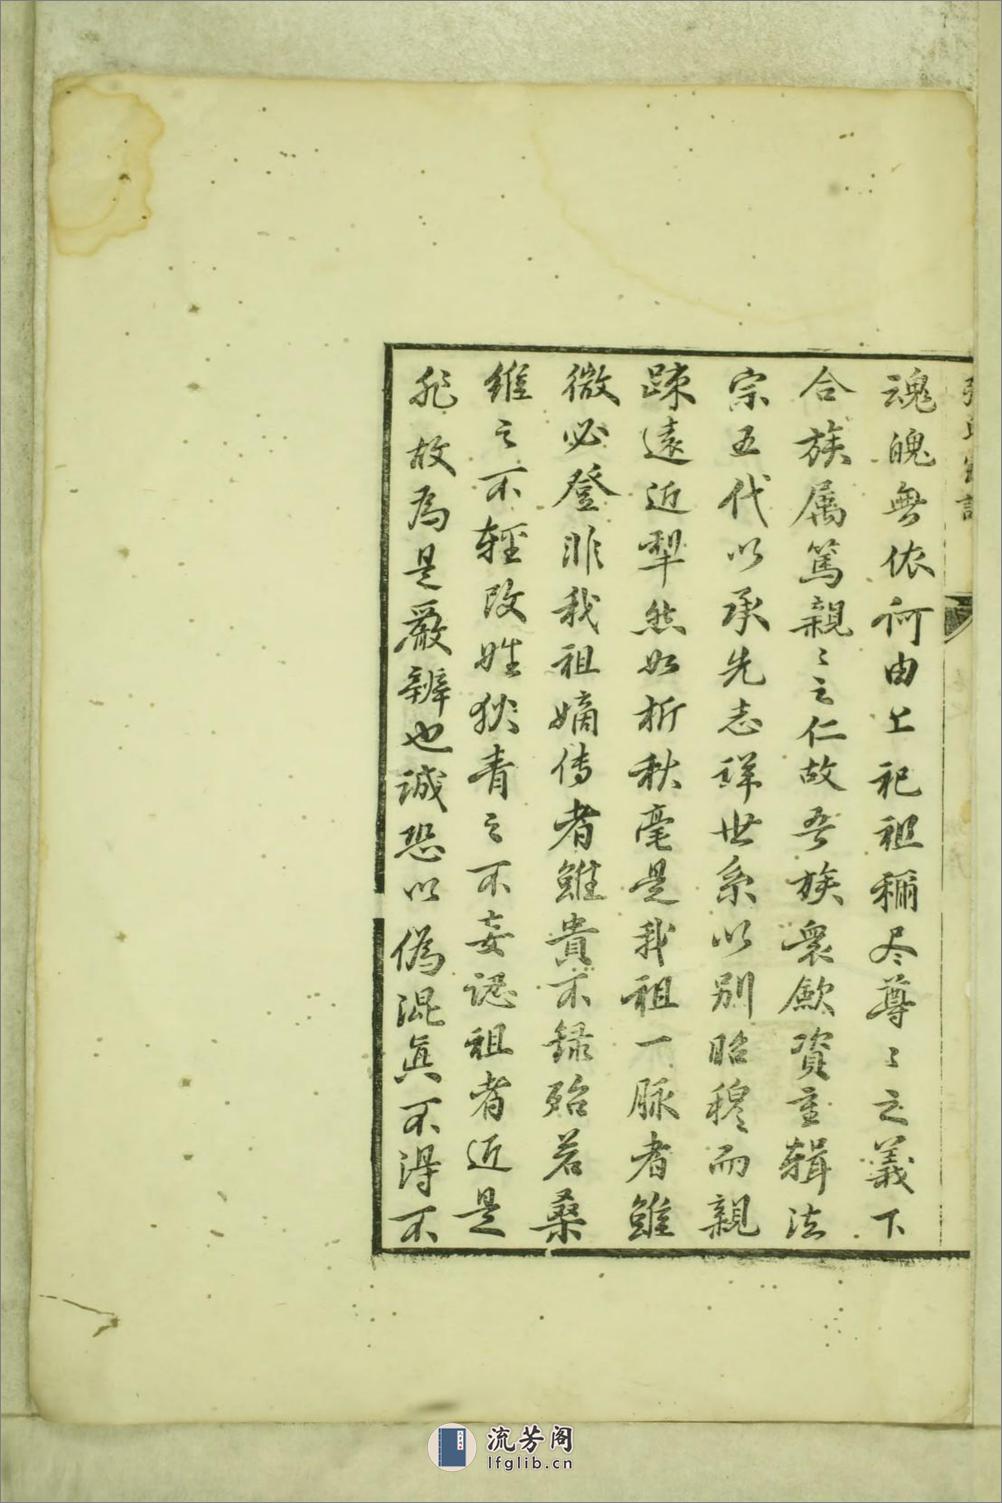 張氏家譜
魂魄無依何由上祀祖禰尽尊〻之義下
合族属篤親〻之仁故吾族裒歛資重輯法
宗五代以承先志詳世系以別昭穆而親
踈遠近犁然如析秋毫是我祖一脈者雖
微必登非我祖嫡传者雖貴不録殆若桑
維之不輕改姓狄青之不妄認祖者近是
耶故為是嚴辨也誠恐以偽混真不得不
流芳阁
lfglib.cn